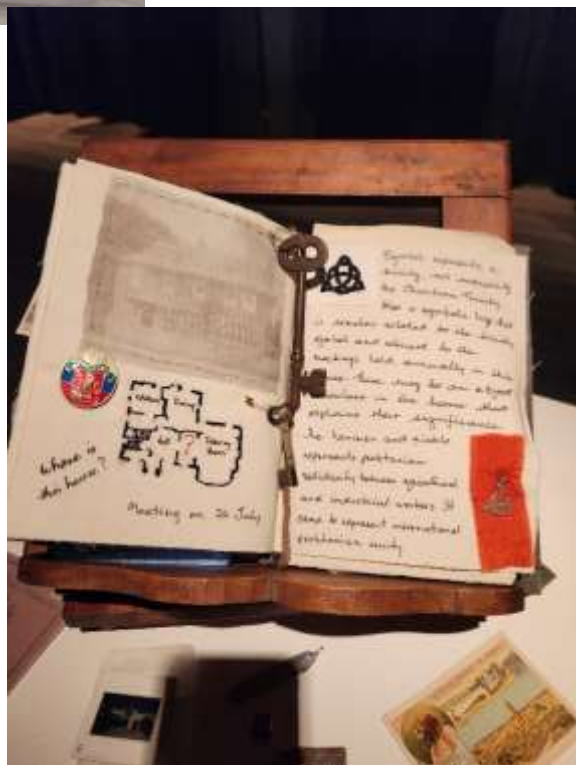 where is
this house?
Hall
Dining
Room
?
Meeting on 20 July
Symbol represents a
trinity, not necessarily
the Christian Trinity.
like a symbolic
is similar related to the trinity
symbol and relevant to the
meetings held annually in this
house. There may be an object
in the house that
explains their significance.
The hammer and sickle
represents proletarian
solidarity between agricultural
and industrial workers. It
came to represent international
proletarian unity